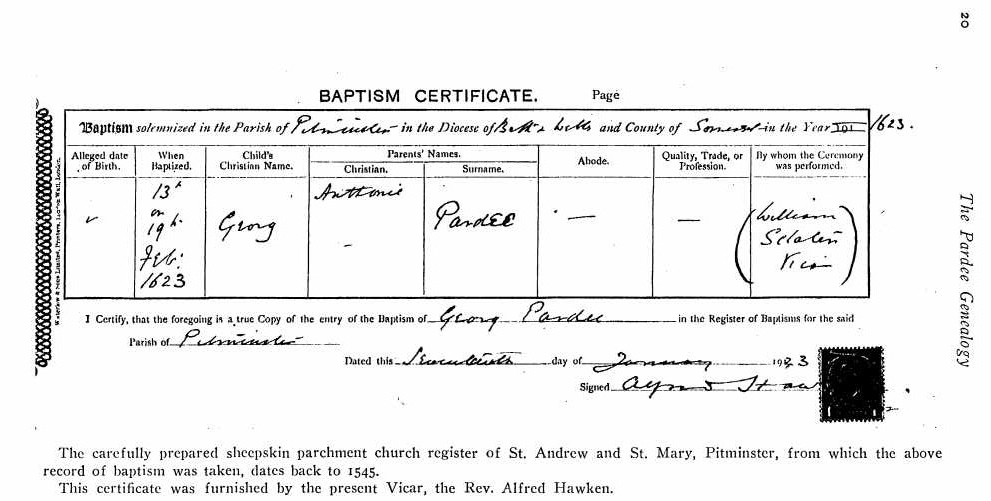 20
BAPTISM CERTIFICATE. Page
Baptism solemnized in the Parish of Pitminster in the Diocese of Bath & Wells and County of Somerset in the Year 1623.
Alleged date of Birth. When Baptized. Child's Christian Name. Parents' Names. Abode. Quality, Trade, or Profession. By whom the Ceremony was performed.
Christian. Surname.
13th
or
19th
Feb:
1623
Georg
Anthonie
Pardee
—
—
(William
Sclater
Vicar)
I Certify, that the foregoing is a true Copy of the entry of the Baptism of Georg Pardee in the Register of Baptisms for the said
Parish of Pitminster
Dated this Seventeenth day of January 1923
Signed Alfred Haw
The Pardee Genealogy
The carefully prepared sheepskin parchment church register of St. Andrew and St. Mary, Pitminster, from which the above
record of baptism was taken, dates back to 1545.
This certificate was furnished by the present Vicar, the Rev. Alfred Hawken.